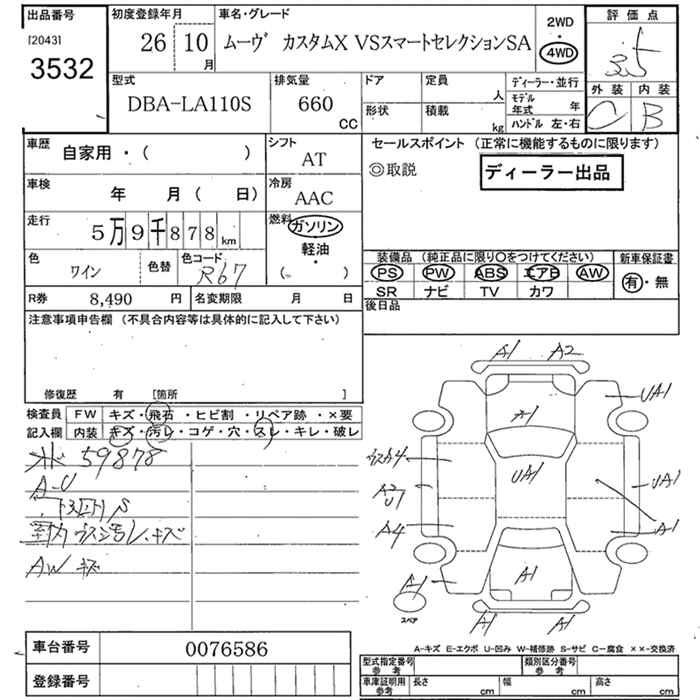 出品番号
[2043]
3532
初度登録年月
26 10 月
車名・グレード
ムーヴ カスタムX VSスマートセレクションSA
2WD
4WD
評価点
3.5
外装 内装
C B
型式
DBA-LA110S
排気量
660 CC
ドア
形状
定員 人
積載 kg
ディーラー・並行
モデル年式 年
ハンドル 左・右
車歴 自家用・( )
シフト AT
セールスポイント (正常に機能するものに限ります)
◎取説
ディーラー出品
車検 年 月 ( 日)
冷房 AAC
走行 5万9千878km
燃料 ガソリン・軽油・( )
色 ワイン
色替
色コード R67
装備品 (純正品に限り○をつけてください)
PS PW ABS エアB AW
SR ナビ TV カワ
新車保証書
有・無
R券 8,490 円
名変期限 月 日
後日品
注意事項申告欄 (不具合内容等は具体的に記入して下さい)
修復歴 有 [箇所 ]
検査員記入欄
FW キズ・飛石・ヒビ割・リペア跡・×要
内装 キズ・汚レ・コゲ・穴・スレ・キレ・破レ
59878
A-U
AW キズ
A1 A2
A1
UA1
ウスA4
UA1
UA1
A4
A1
A1
A1
A1 A1
スペア
A-キズ E-エクボ U-凹み W-補修跡 S-サビ C-腐食 ××-交換済
車台番号 0076586
登録番号
型式指定番号 参考
類別区分番号 参考
車庫証明用 参考
長さ cm 幅 cm 高さ cm